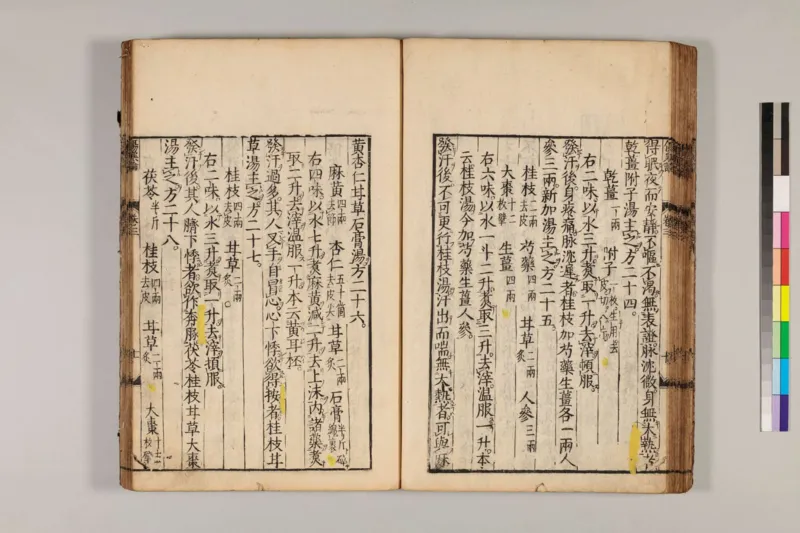 得眠夜而安靜不嘔不渴無表證脉沈微身無大熱者
乾薑附子湯主之方二十四。
乾薑一兩 附子一枚生用去皮切八片
右二味以水三升煑取一升去滓頓服。
發汗後身疼痛脉沈遲者桂枝加芍藥生薑各一兩人
參三兩。新加湯主之方二十五。
桂枝三兩去皮 芍藥四兩 甘草二兩炙 人參三兩
大棗十二枚擘 生薑四兩
右六味以水一斗二升煑取三升。去滓温服一升。本
云桂枝湯今加芍藥生薑人參。
發汗後不可更行桂枝湯汗出而喘無大熱者可與麻
黄杏仁甘草石膏湯方二十六。
麻黄四兩去節 杏仁五十箇去皮尖 甘草二兩炙 石膏半斤碎綿裹
右四味以水七升煑麻黄減二升去上沫内諸藥煑
取二升去滓温服一升本云黄耳杯。
發汗過多其人叉手自冒心心下悸欲得按者桂枝甘
草湯主之方二十七。
桂枝四兩去皮 甘草二兩炙
右二味以水三升煑取一升去滓頓服。
發汗後其人臍下悸者欲作奔豚茯苓桂枝甘草大棗
湯主之方二十八。
茯苓半斤 桂枝四兩去皮 甘草二兩炙 大棗十五枚擘